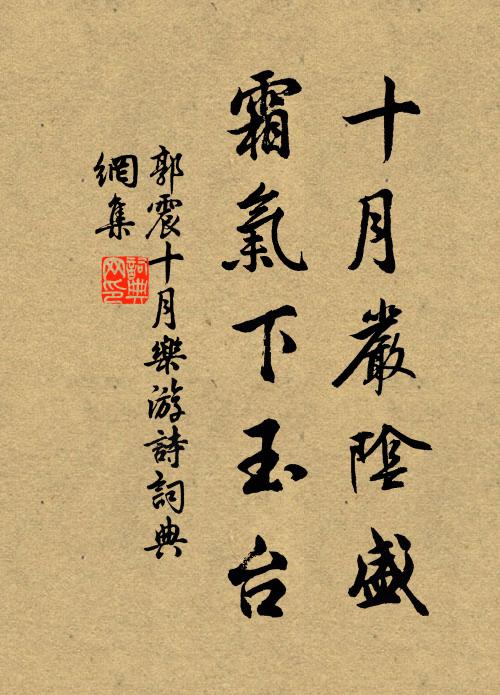 十月嚴陰盛
霜氣下玉台
郭震十月樂游詩詞典
網集
詞典
网印